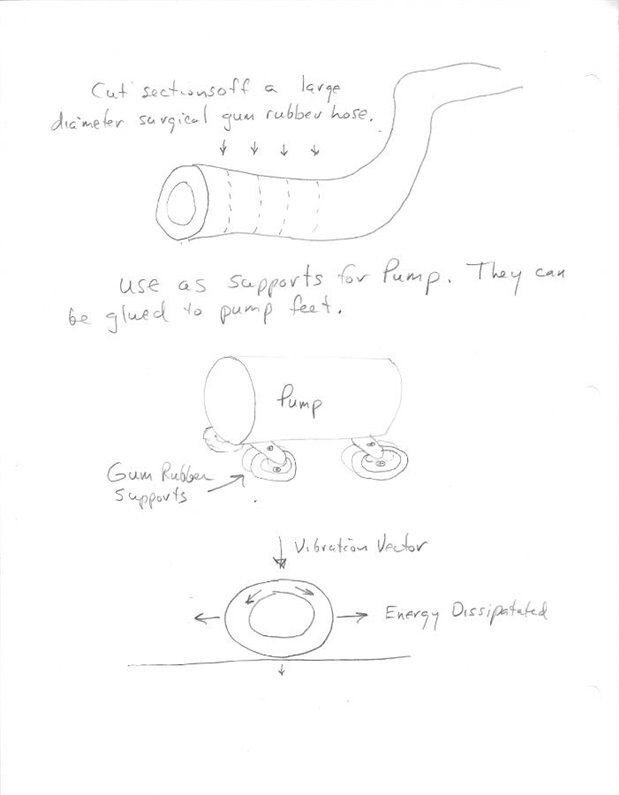 Cut sections off a large
diameter surgical gum rubber hose.
use as supports for Pump. They can
be glued to pump feet.
Pump
Gum Rubber
Supports
Vibration Vector
Energy Dissipatated